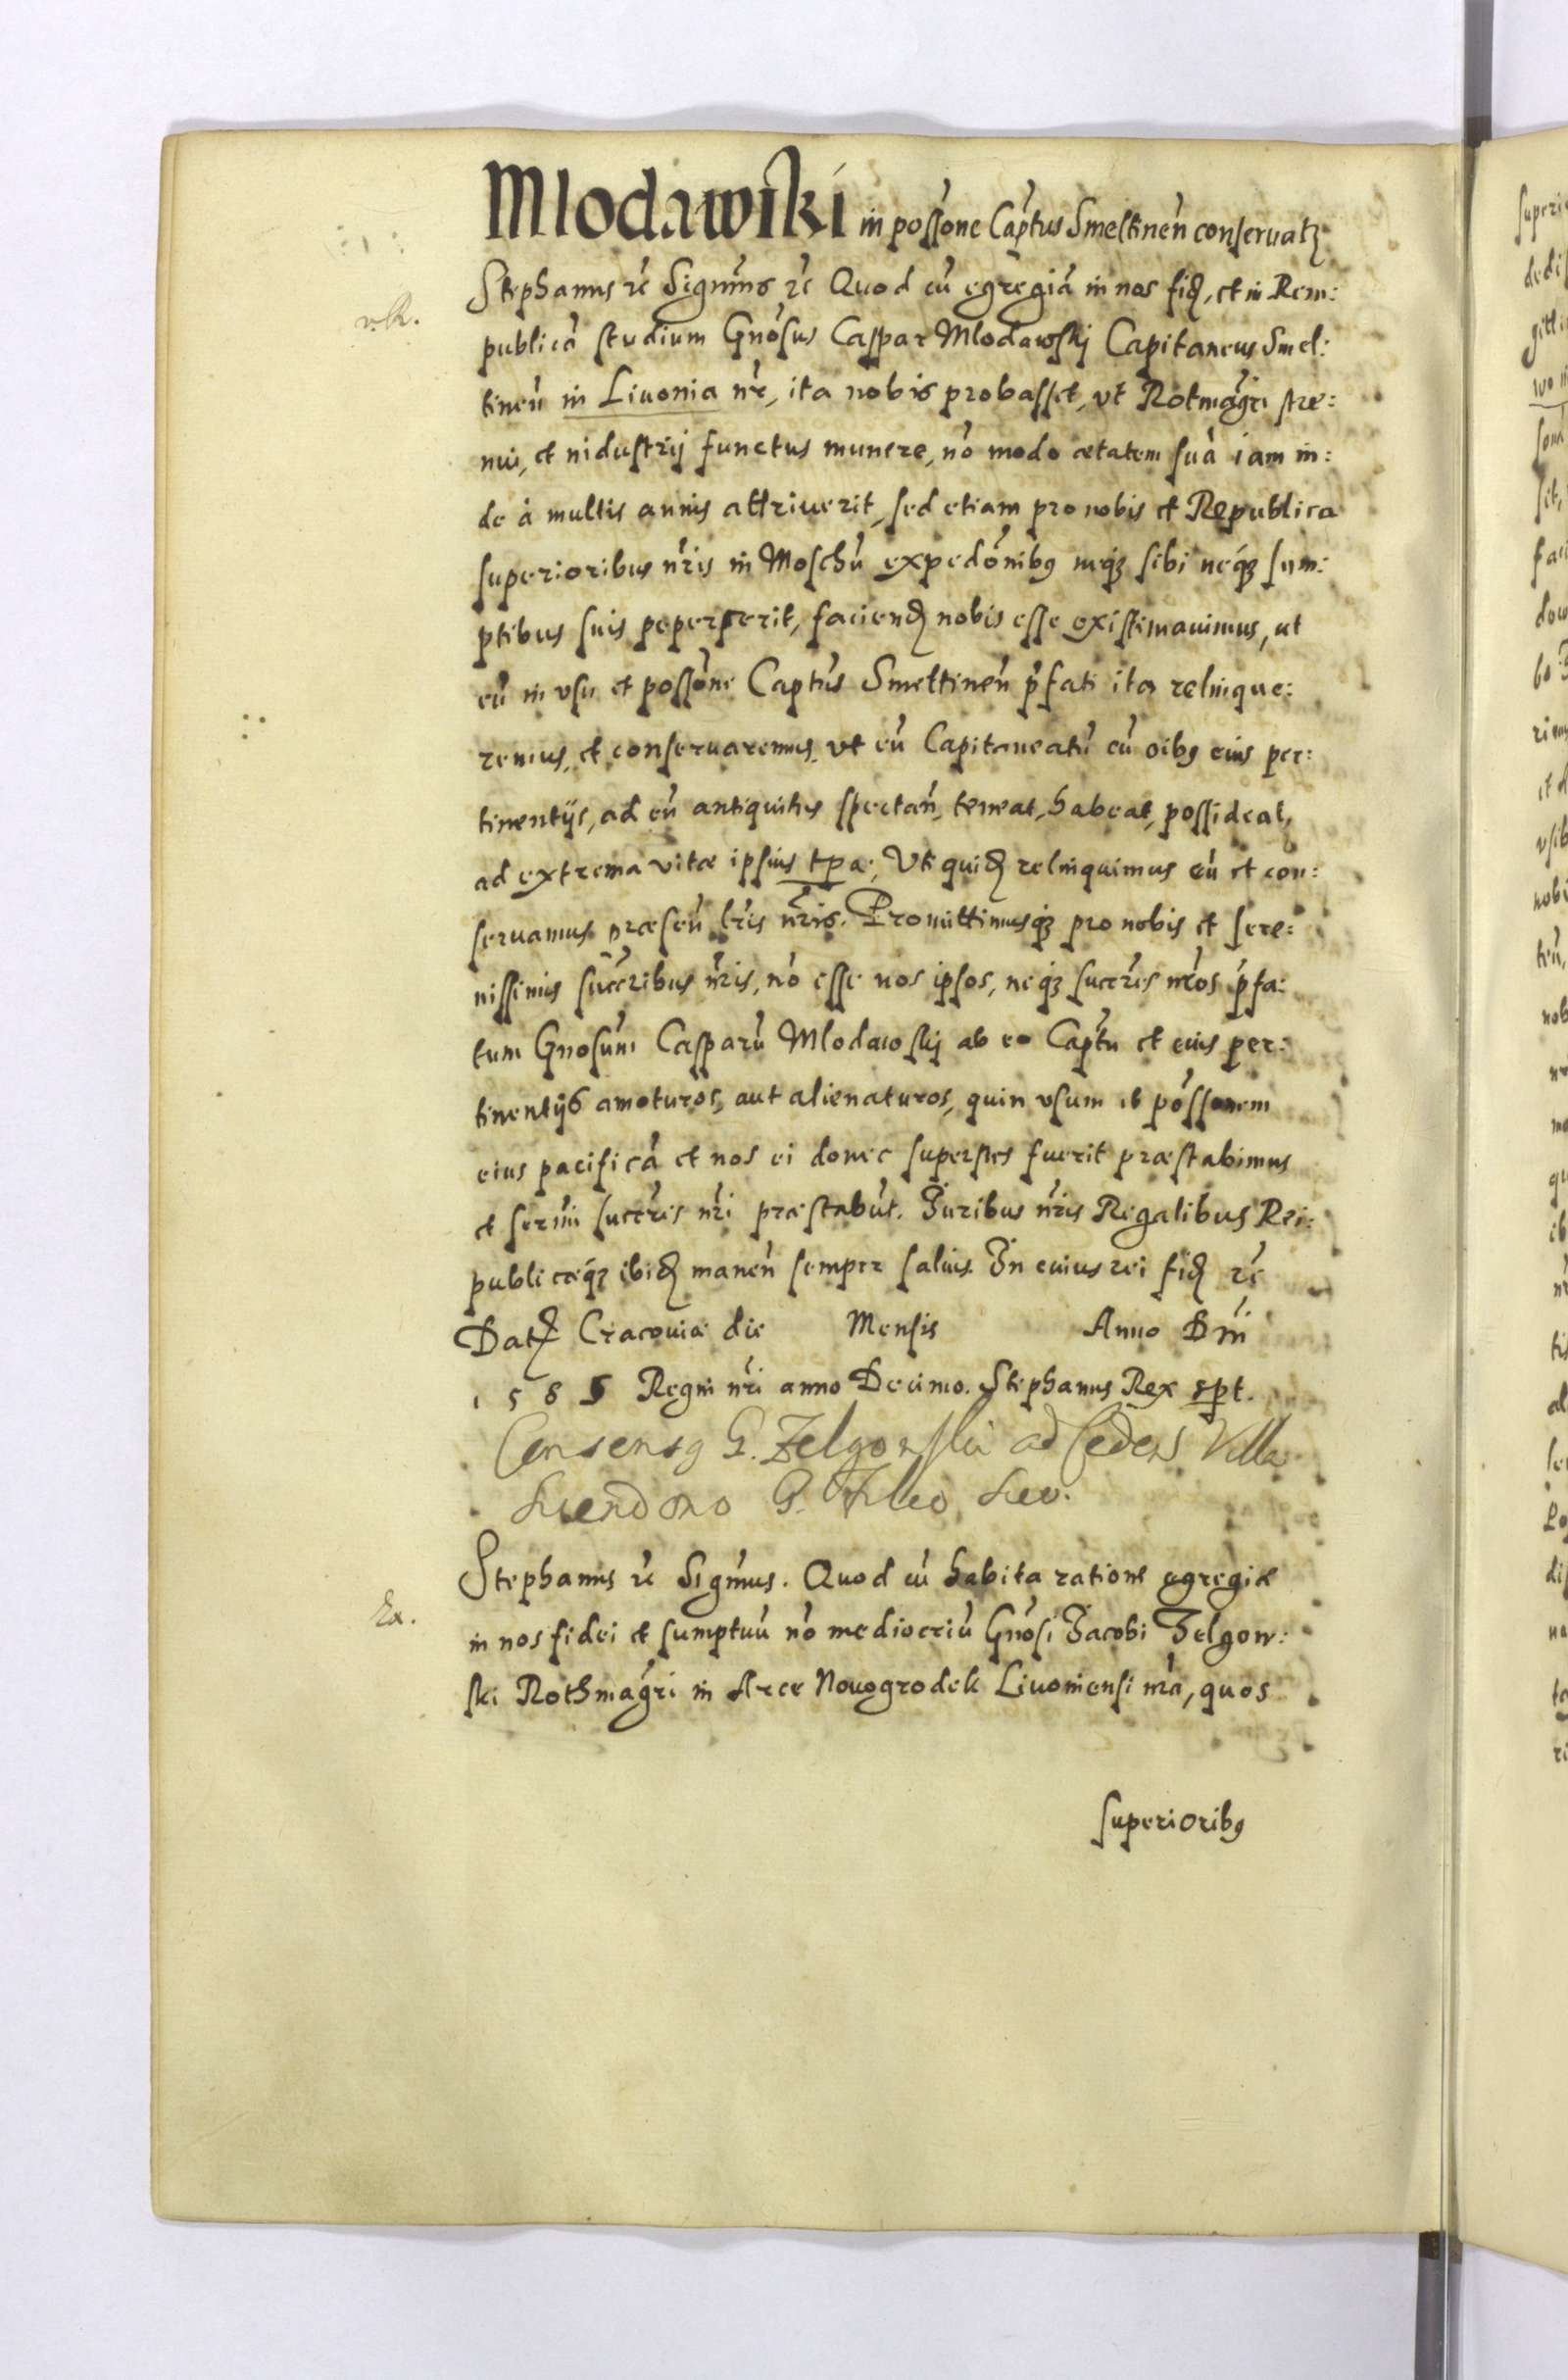 Mlodawski in possōne Captus Smeltineñ conseruatȝ
Stephanus rc̄ Significamus rc̄ Quod cū egregiā in nos fidȝ, et in Rem:
v.R.
publicā studium Gnosus Caspar Mlodawskj Capitaneus Smel:
tineñ in Liuonia nr̄, ita nobis probasset, vt Rotmagri stre:
nui, et industrij functus munere, nō modo ætatem suā iam in:
de à multis annis attriuerit, sed etiam pro nobis et Republica
superioribus nr̄is in Moschū expedōnibȝ neqȝ sibi neqȝ sum:
ptibus suis pepercerit, faciendȝ nobis esse existimauimus, ut
eū in vsu et possōne Captus Smeltineñ p̄fati ita relinque:
remus, et conseruaremus, vt eū Capitaneatū cū oībȝ eius per:
tinentijs, ad eū antiquitus spectañ, teneat, habeat, possideat,
ad extrema vitæ ipsius tp̄a; Vti quidȝ relinquimus eū et con:
seruamus præseñ lr̄is nr̄is. Promittimusqȝ pro nobis et sere:
nissimis succr̄ibus nr̄is, nō esse nos ipsos, neqȝ succr̄es nr̄os p̄fa:
tum Gnosum Casparū Mlodawskj ab eo Captu et eius per:
tinentijs amoturos, aut alienaturos, quin vsum et possonem
eius pacificā et nos ei donec superstes fuerit præstabimus
et sermi succr̄es nr̄i præstabūt. Juribus nr̄is Regalibus Rei:
publicæqȝ ibidȝ maneñ semper saluis. In cuius rei fidȝ rc̄
Datȝ Cracouiæ die Mensis Anno Dn̄i
1585 Regni nr̄i anno Decimo. Stephanus Rex spt.
Consensȝ G. Zelgowski ad cedend Villa
G.
Stephanus rc̄ Sigmus. Quod cū habita ratione egregiæ
Ex.
in nos fidei et sumptuū nō mediocriū Gnosi Jacobi Zelgow:
ski Rothmagri in Arce Nouogrodek Liuoniensi nr̄a, quos
superioribȝ